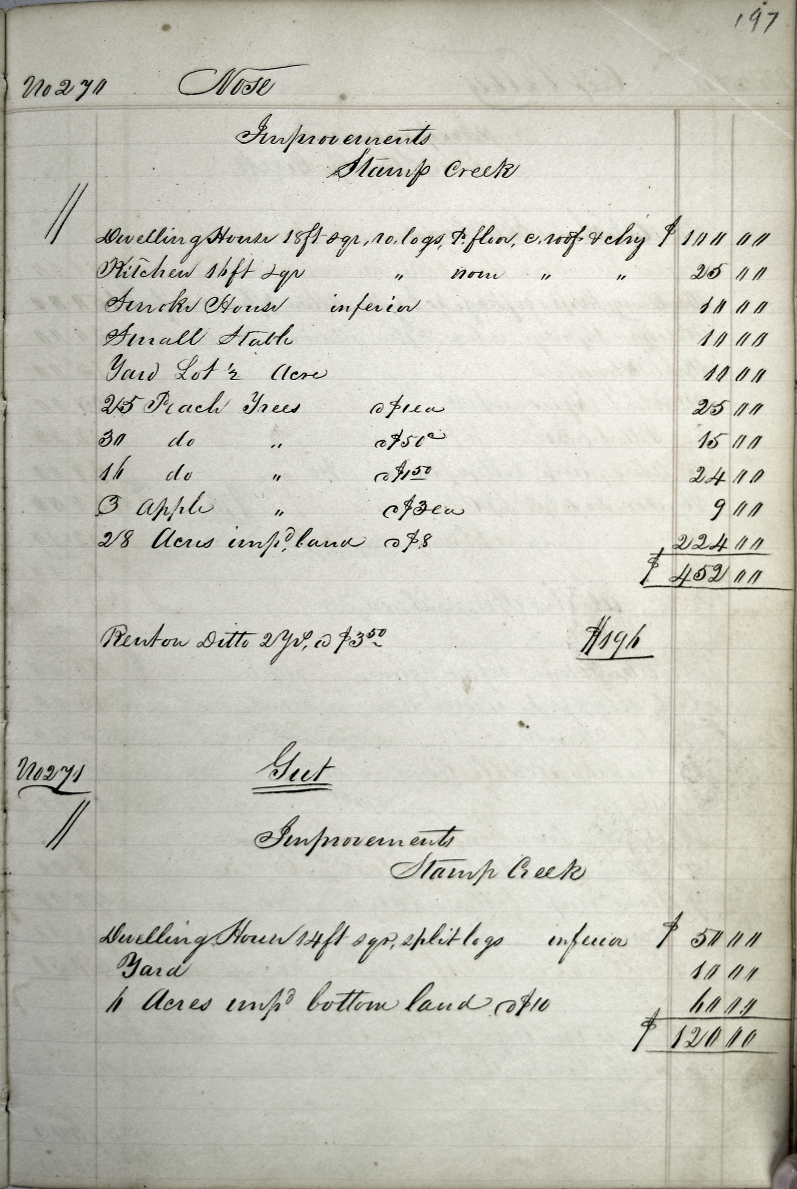 197
No 270 Nose
Improvements
Stamp Creek
Dwelling House 18ft sqr, ro. logs, P. floor, c. roof & chy $ 100 00
Kitchen 16ft sqr " " " " 25 00
Smoke House inferior 10 00
Small Stable 10 00
Yard Lot ½ Acre 10 00
25 Peach Trees @ $1 ea 25 00
30 do " @ $50c 15 00
16 do " @ $1.50 24 00
3 Apple " @ $3 ea 9 00
28 Acres imp.d land @ $8 224 00
$ 452 00
Rent on Ditto 2 Yrs, @ $3.50 $196
No 271 Gut
Improvements
Stamp Creek
Dwelling House 14ft sqr, split logs inferior $ 50 00
Yard 10 00
6 Acres imp.d bottom land @ $10 60 00
$ 120 00